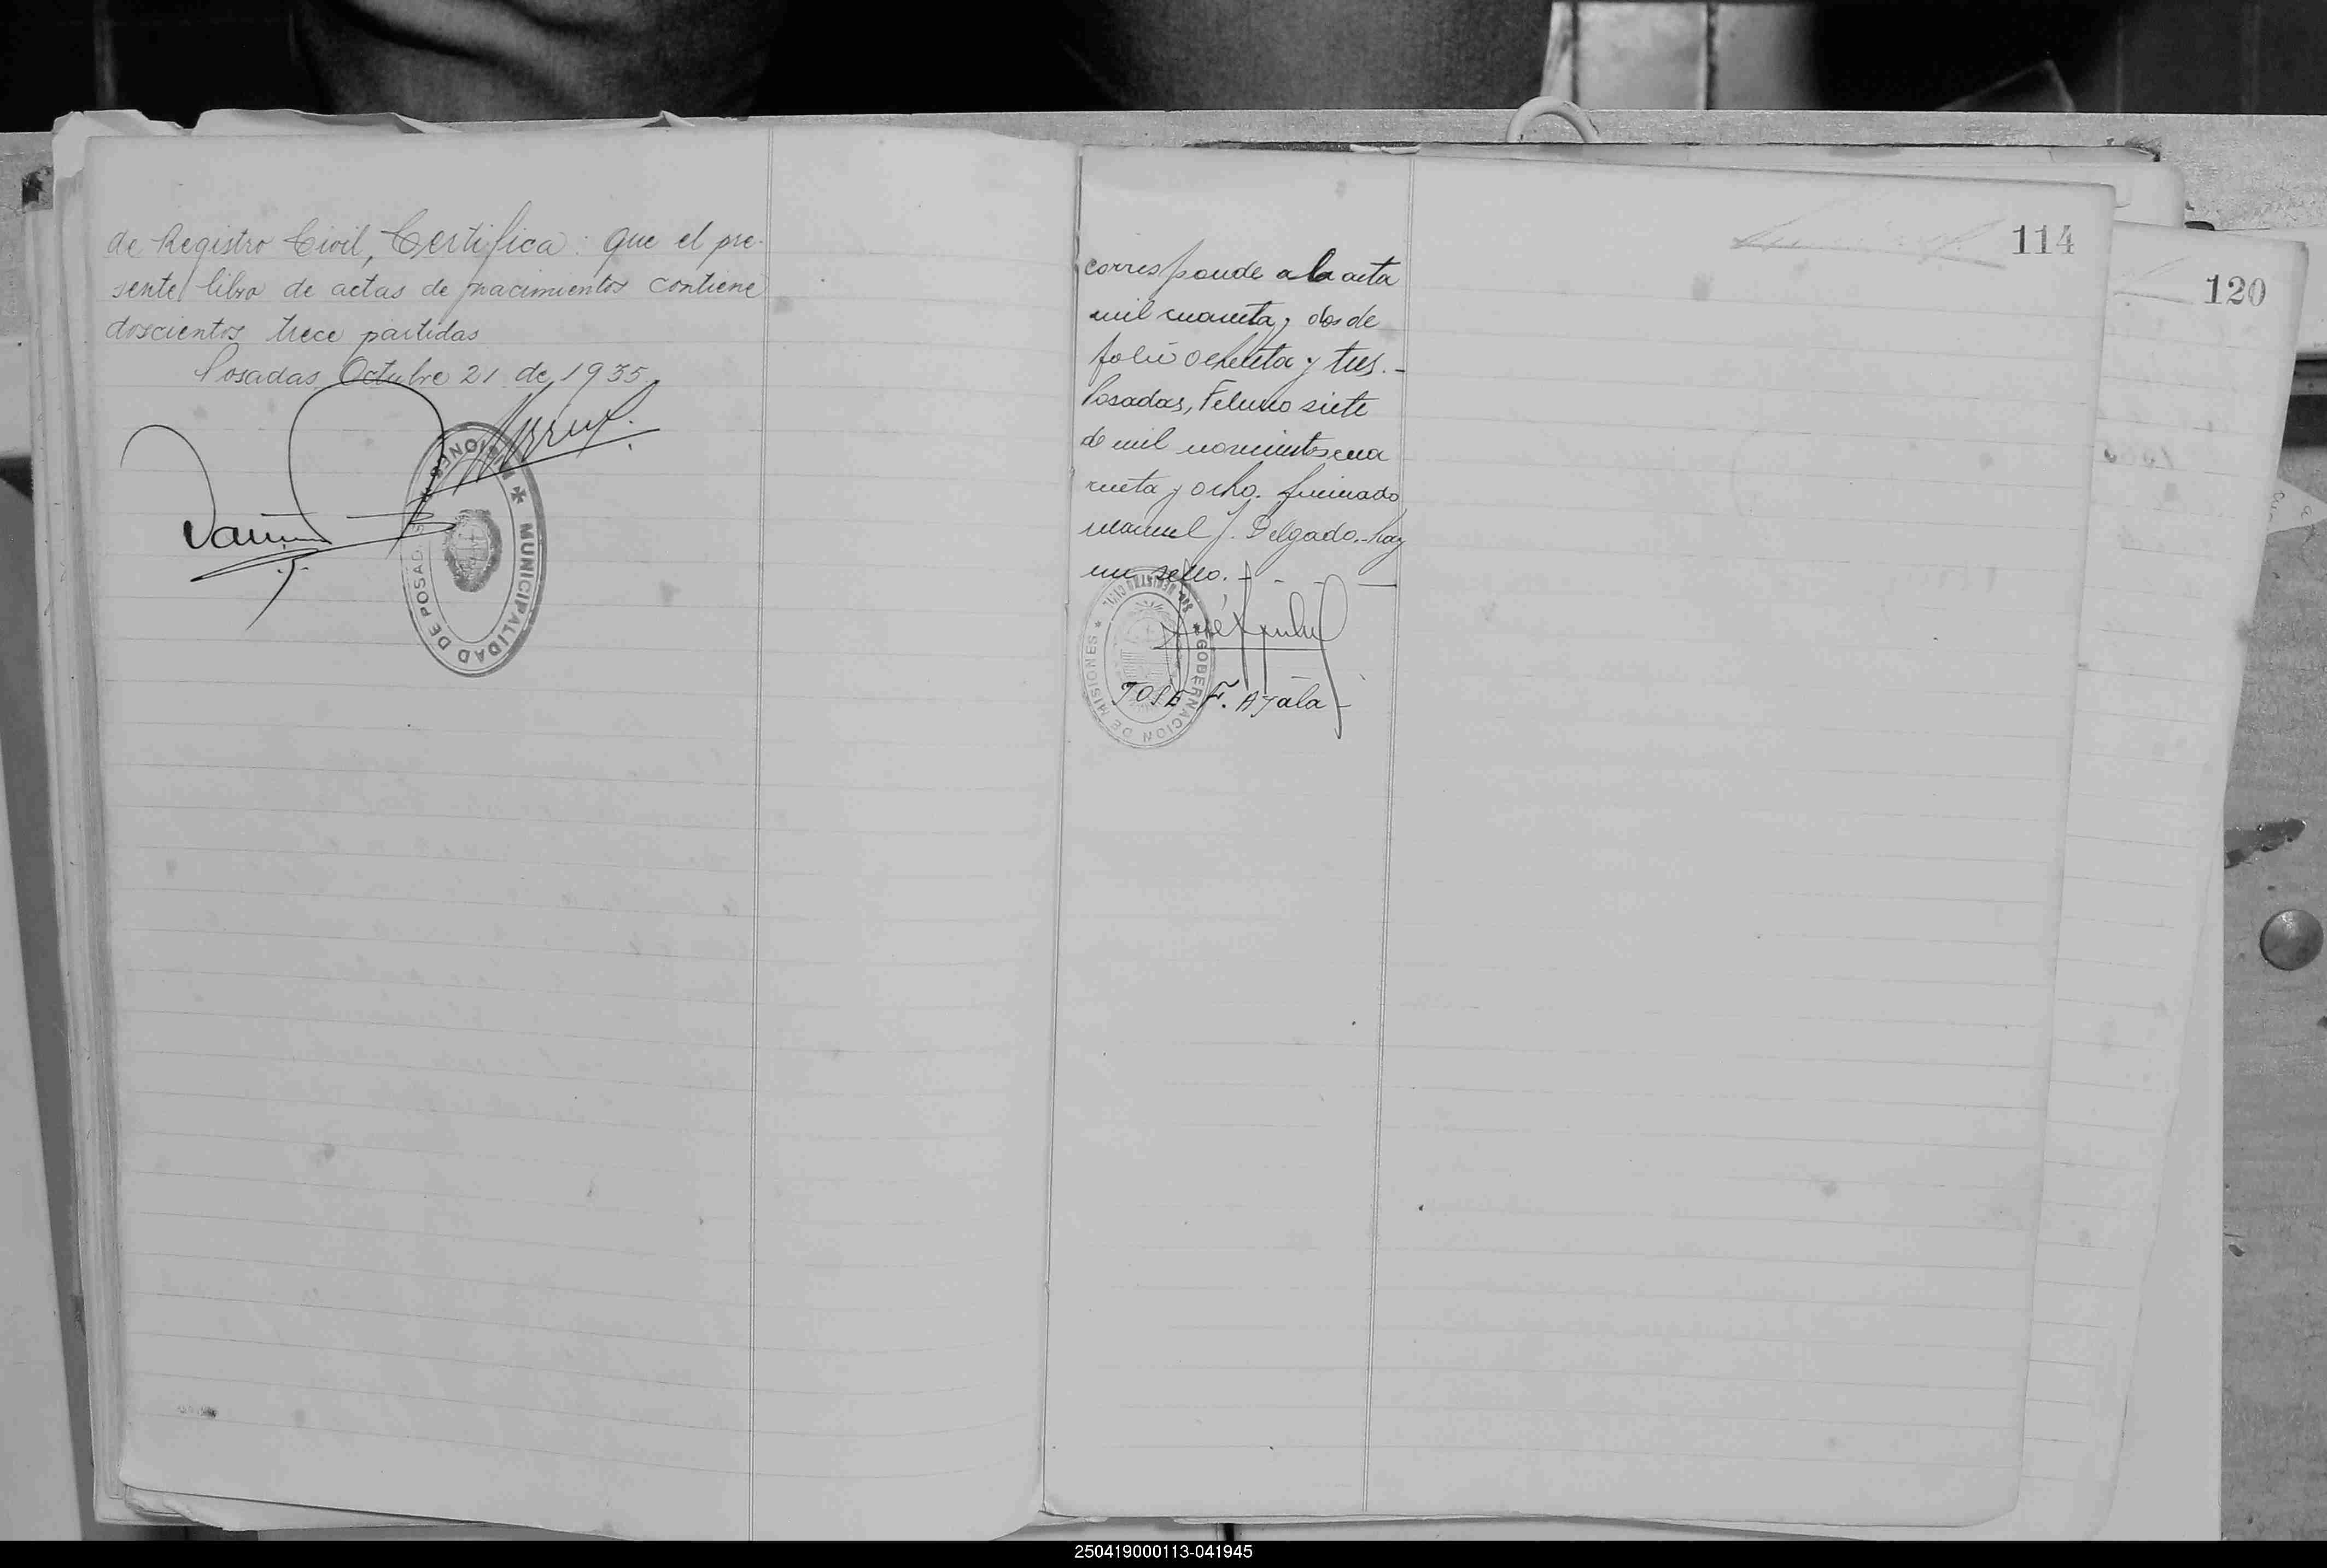 de Registro Civil, Certifica: que el pre-
sente libro de actas de nacimientos contiene
doscientos trece partidas
Posadas Octubre 21 de 1935
MUNICIPALIDAD DE POSADAS MISIONES
114
corresponde a la acta
mil cuarenta y dos de
folio ochenta y tres.-
Posadas, Febrero siete
de mil novecientos cua
renta y ocho. firmado
Manuel J. Delgado.-hay
un sello. - - - -
GOBERNACION DE MISIONES
REGISTRO CIVIL
JOSE F. Ayala
120
250419000113-041945